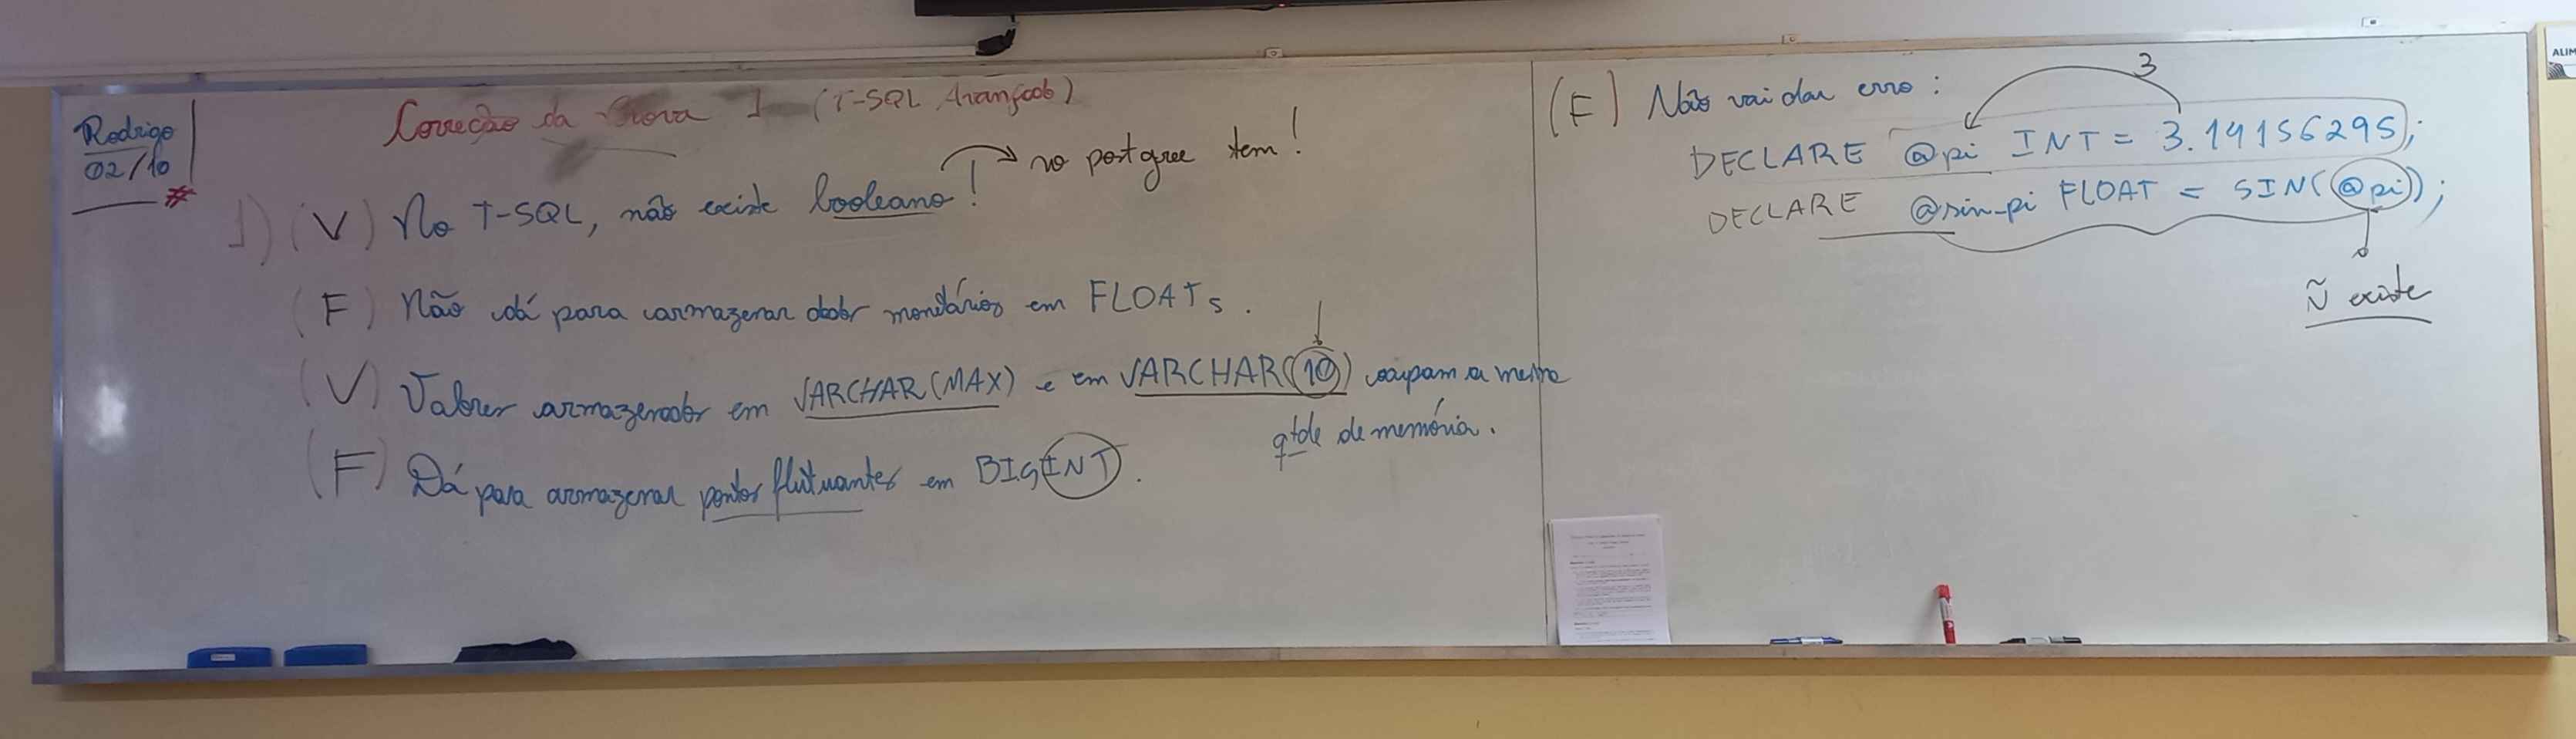 Rodrigo
02/10
#
Correção da Prova 1 (T-SQL Avançado)
1) (V) No T-SQL, não existe booleano! → no postgree tem!
(F) Não dá para armazenar dados monetários em FLOATs.
(V) Valores armazenados em VARCHAR(MAX) e em VARCHAR(10) ocupam a mesma
qtde de memória.
(F) Dá para armazenar pontos flutuantes em BIGINT.
(F) Não vai dar erro:
3
DECLARE @pi INT = 3.14156295;
DECLARE @sin_pi FLOAT = SIN(@pi);
Ñ existe
ALIM